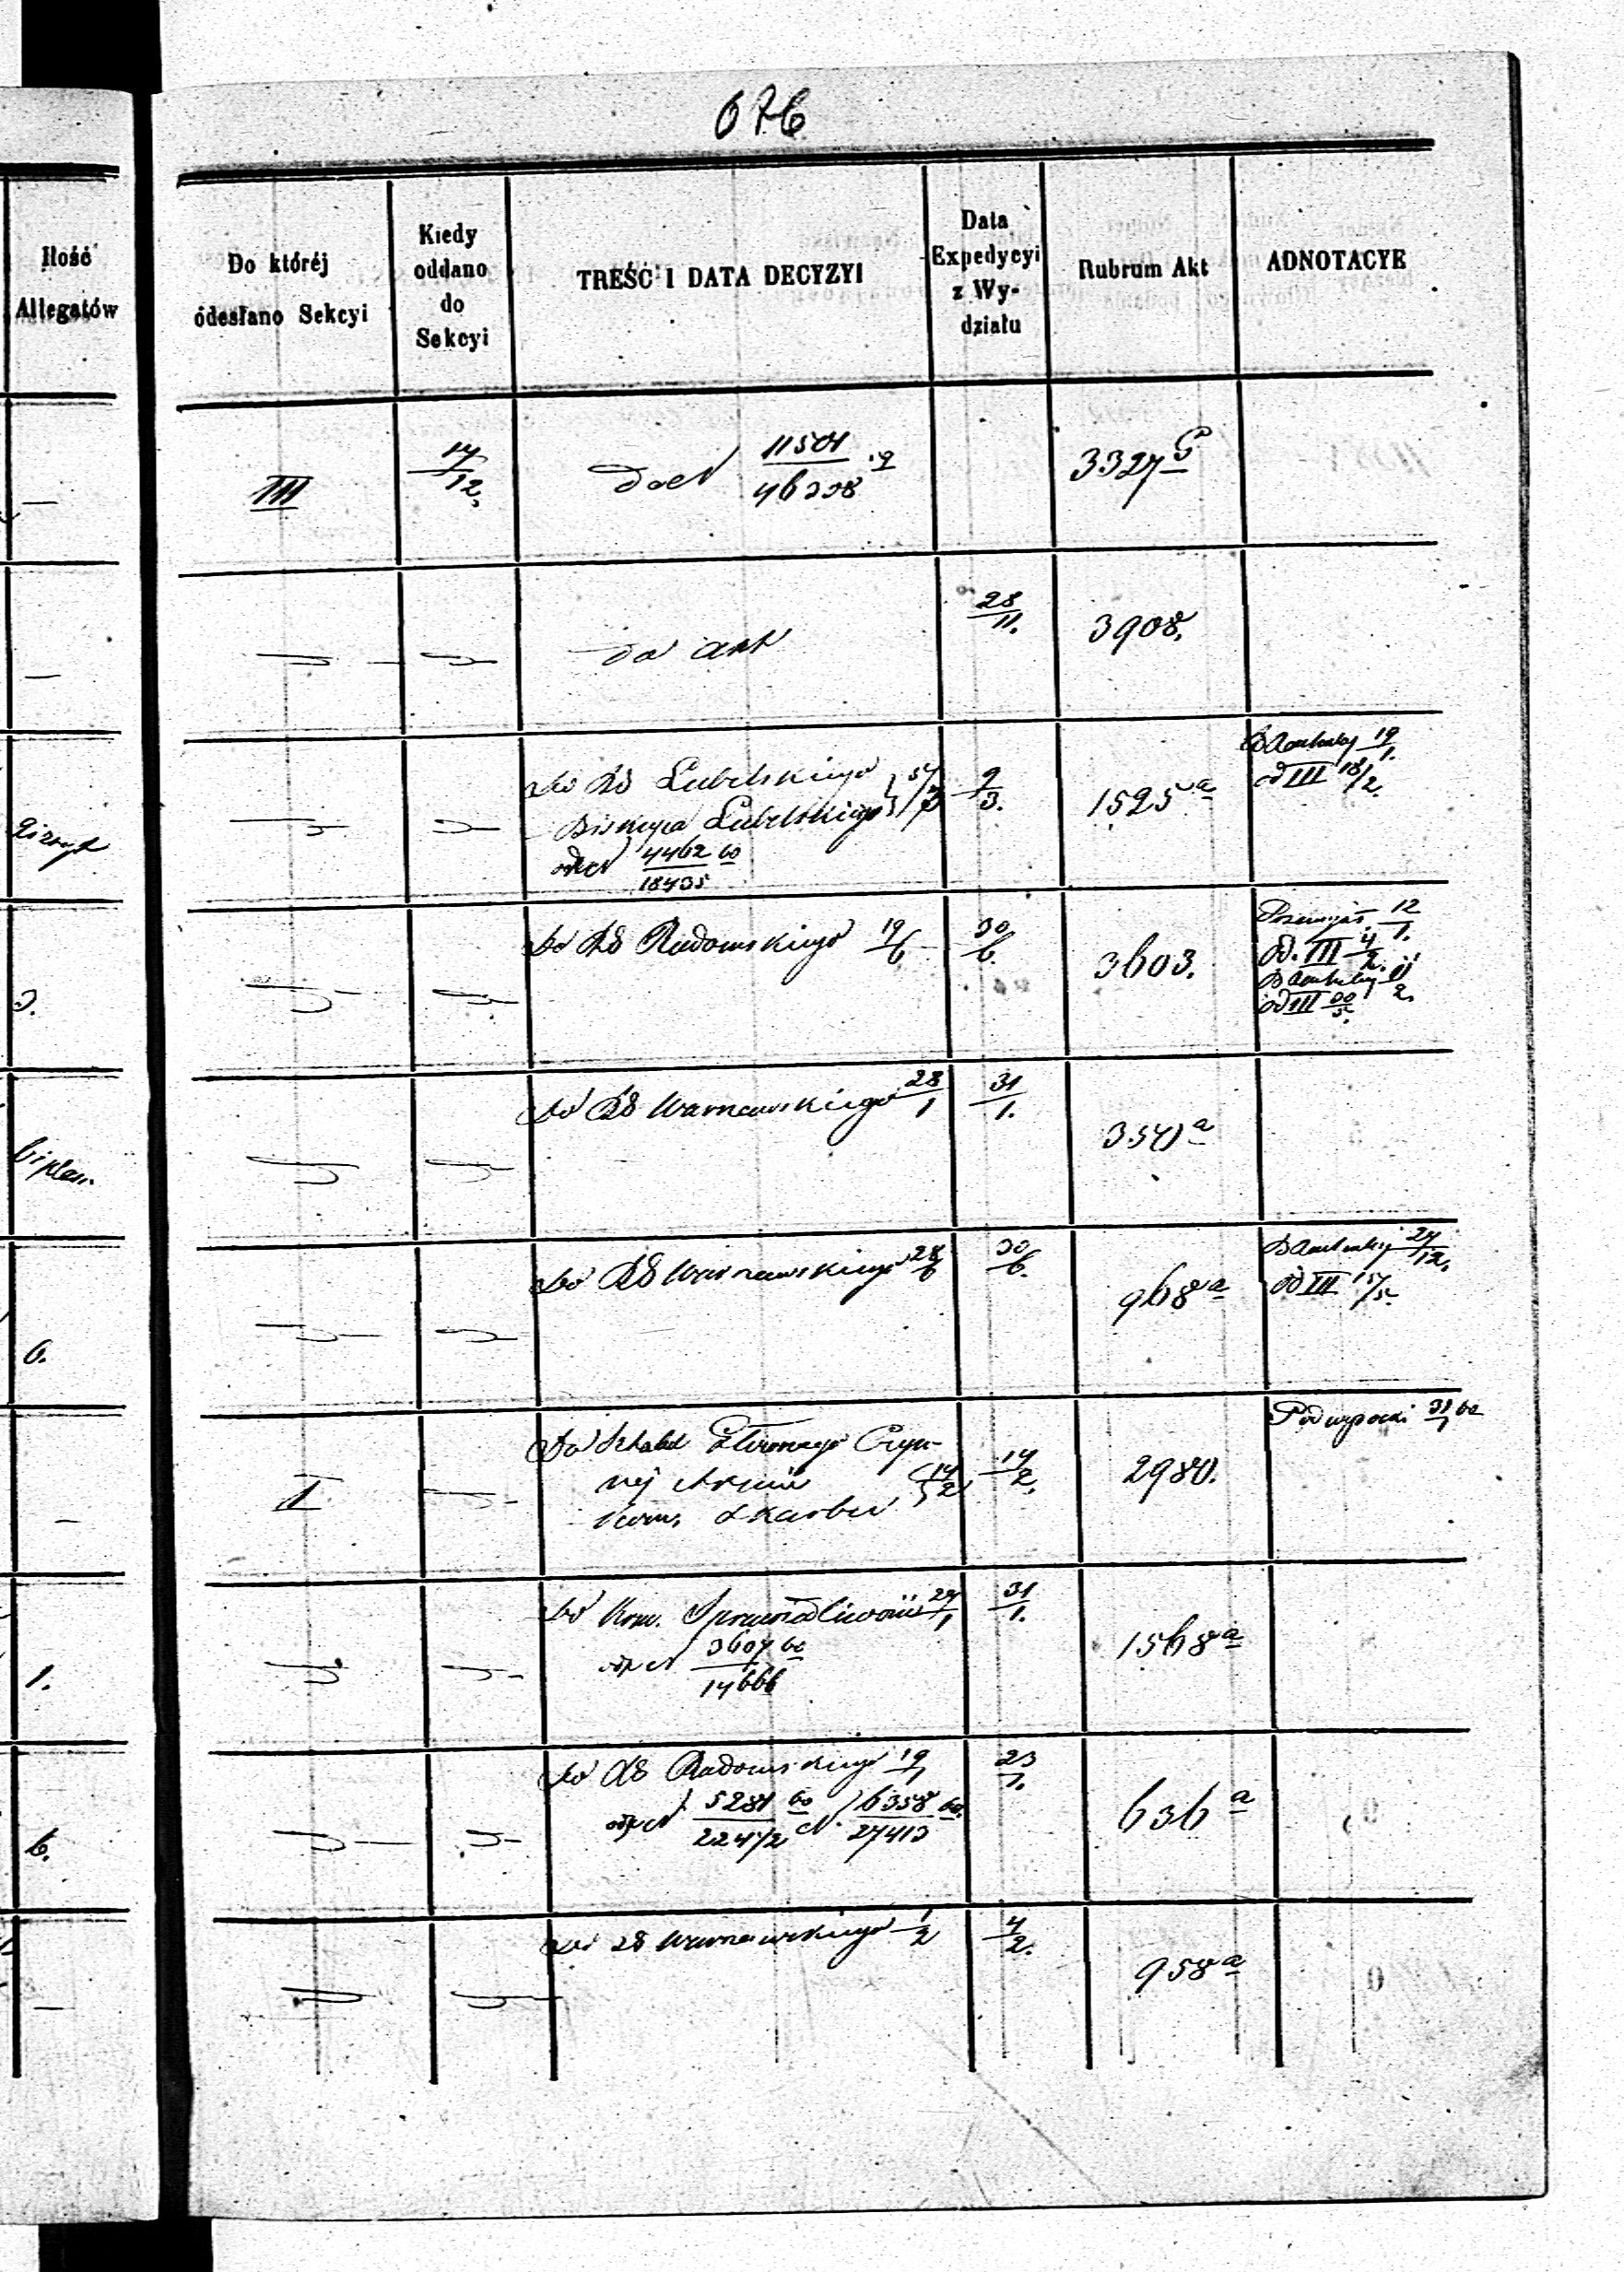 676
Ilość
Allegatów
Do któréj
ódesłano Sekcyi
Kiedy
oddano
do
Sekcyi
TREŚĆ I DATA DECYZYI
Data
Expedycyi
z Wy-
działu
Rubrum Akt
ADNOTACYE
III
17/12
do N 11501/46208
3327
do akt
28/11.
3908.
Do RG Lubelskiego
Biskupa Lubelskiego
odp N 4462 60/18435
9/3.
1525 a
19/1.
od III 18/2.
3.
Do RG Radomskiego 19/6
30/6.
3603.
12/1.
od. III 4/2.
od III 30/5.
Do RG Warszawskiego 28/1
31/1.
6.
Do RG Warszawskiego 28/6
30/6.
968 a
27/12.
od III 15/5.
I
Do Sztabu Głównego Czyn-
nej Armii
Kom. Skarbu
14/2
17/2.
2980.
Podwysocki 31/1 60
1.
Do Kom. Sprawiedliwości 29/1
odp N 3607 60/14666
31/1.
1568 a
6.
Do RG Radomskiego 19/1
odp N 5281 60/22472 N 6358 60/27413
23/1.
636 a
Do RG Warszawskiego 1/2
4/2.
958 a